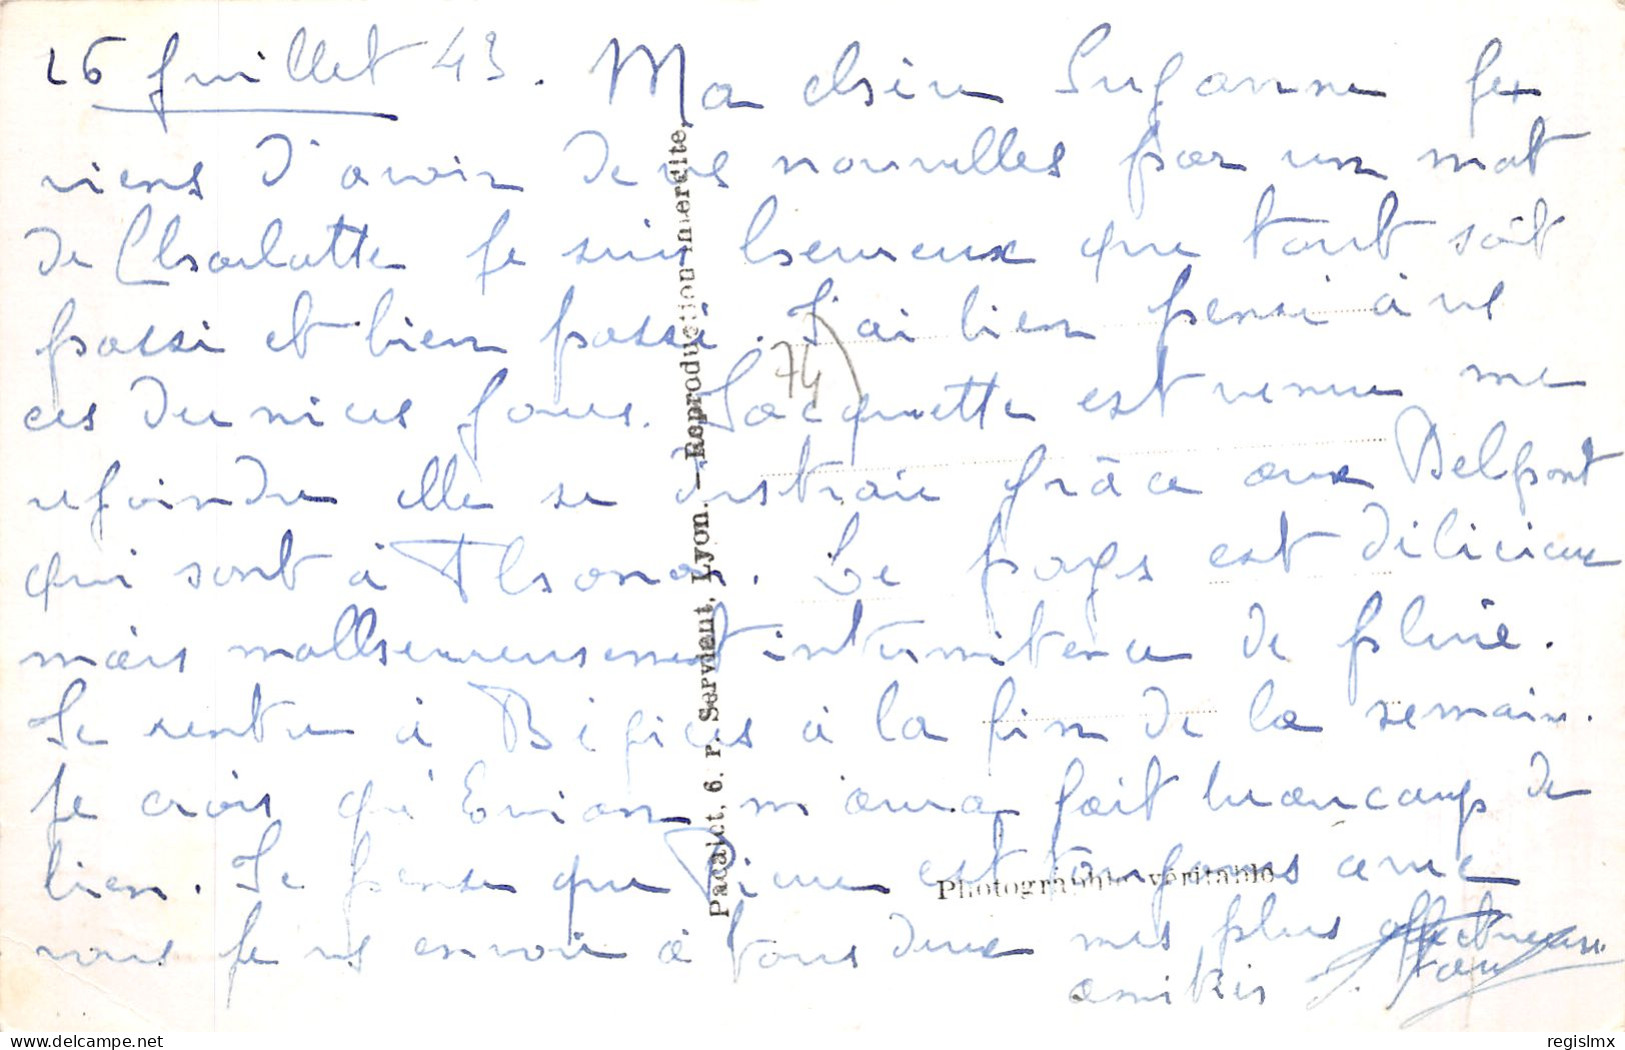 26 Juillet 43. Ma chère Suzanne je
viens d'avoir de vs nouvelles par un mot
de Charlotte je suis heureux que tout soit
passé et bien passé. J'ai bien pensé à vs
ces derniers jours. Jacquette est venue me
rejoindre elle se distraie grâce aux Delpont
qui sont à Thonon. Le pays est délicieux
mais malheureusement intermitence de pluie.
Je rentre à Béziers à la fin de la semaine.
Je crois qu'Evian m'aura fait beaucoup de
bien. Je pense que Pierre est toujours avec
vous je vs envoie à tous deux mes plus affectueuses
amitiés
74
Pacalet, 6. r. Servient, Lyon. — Reproduction interdite,
Photographie véritable
regislmx